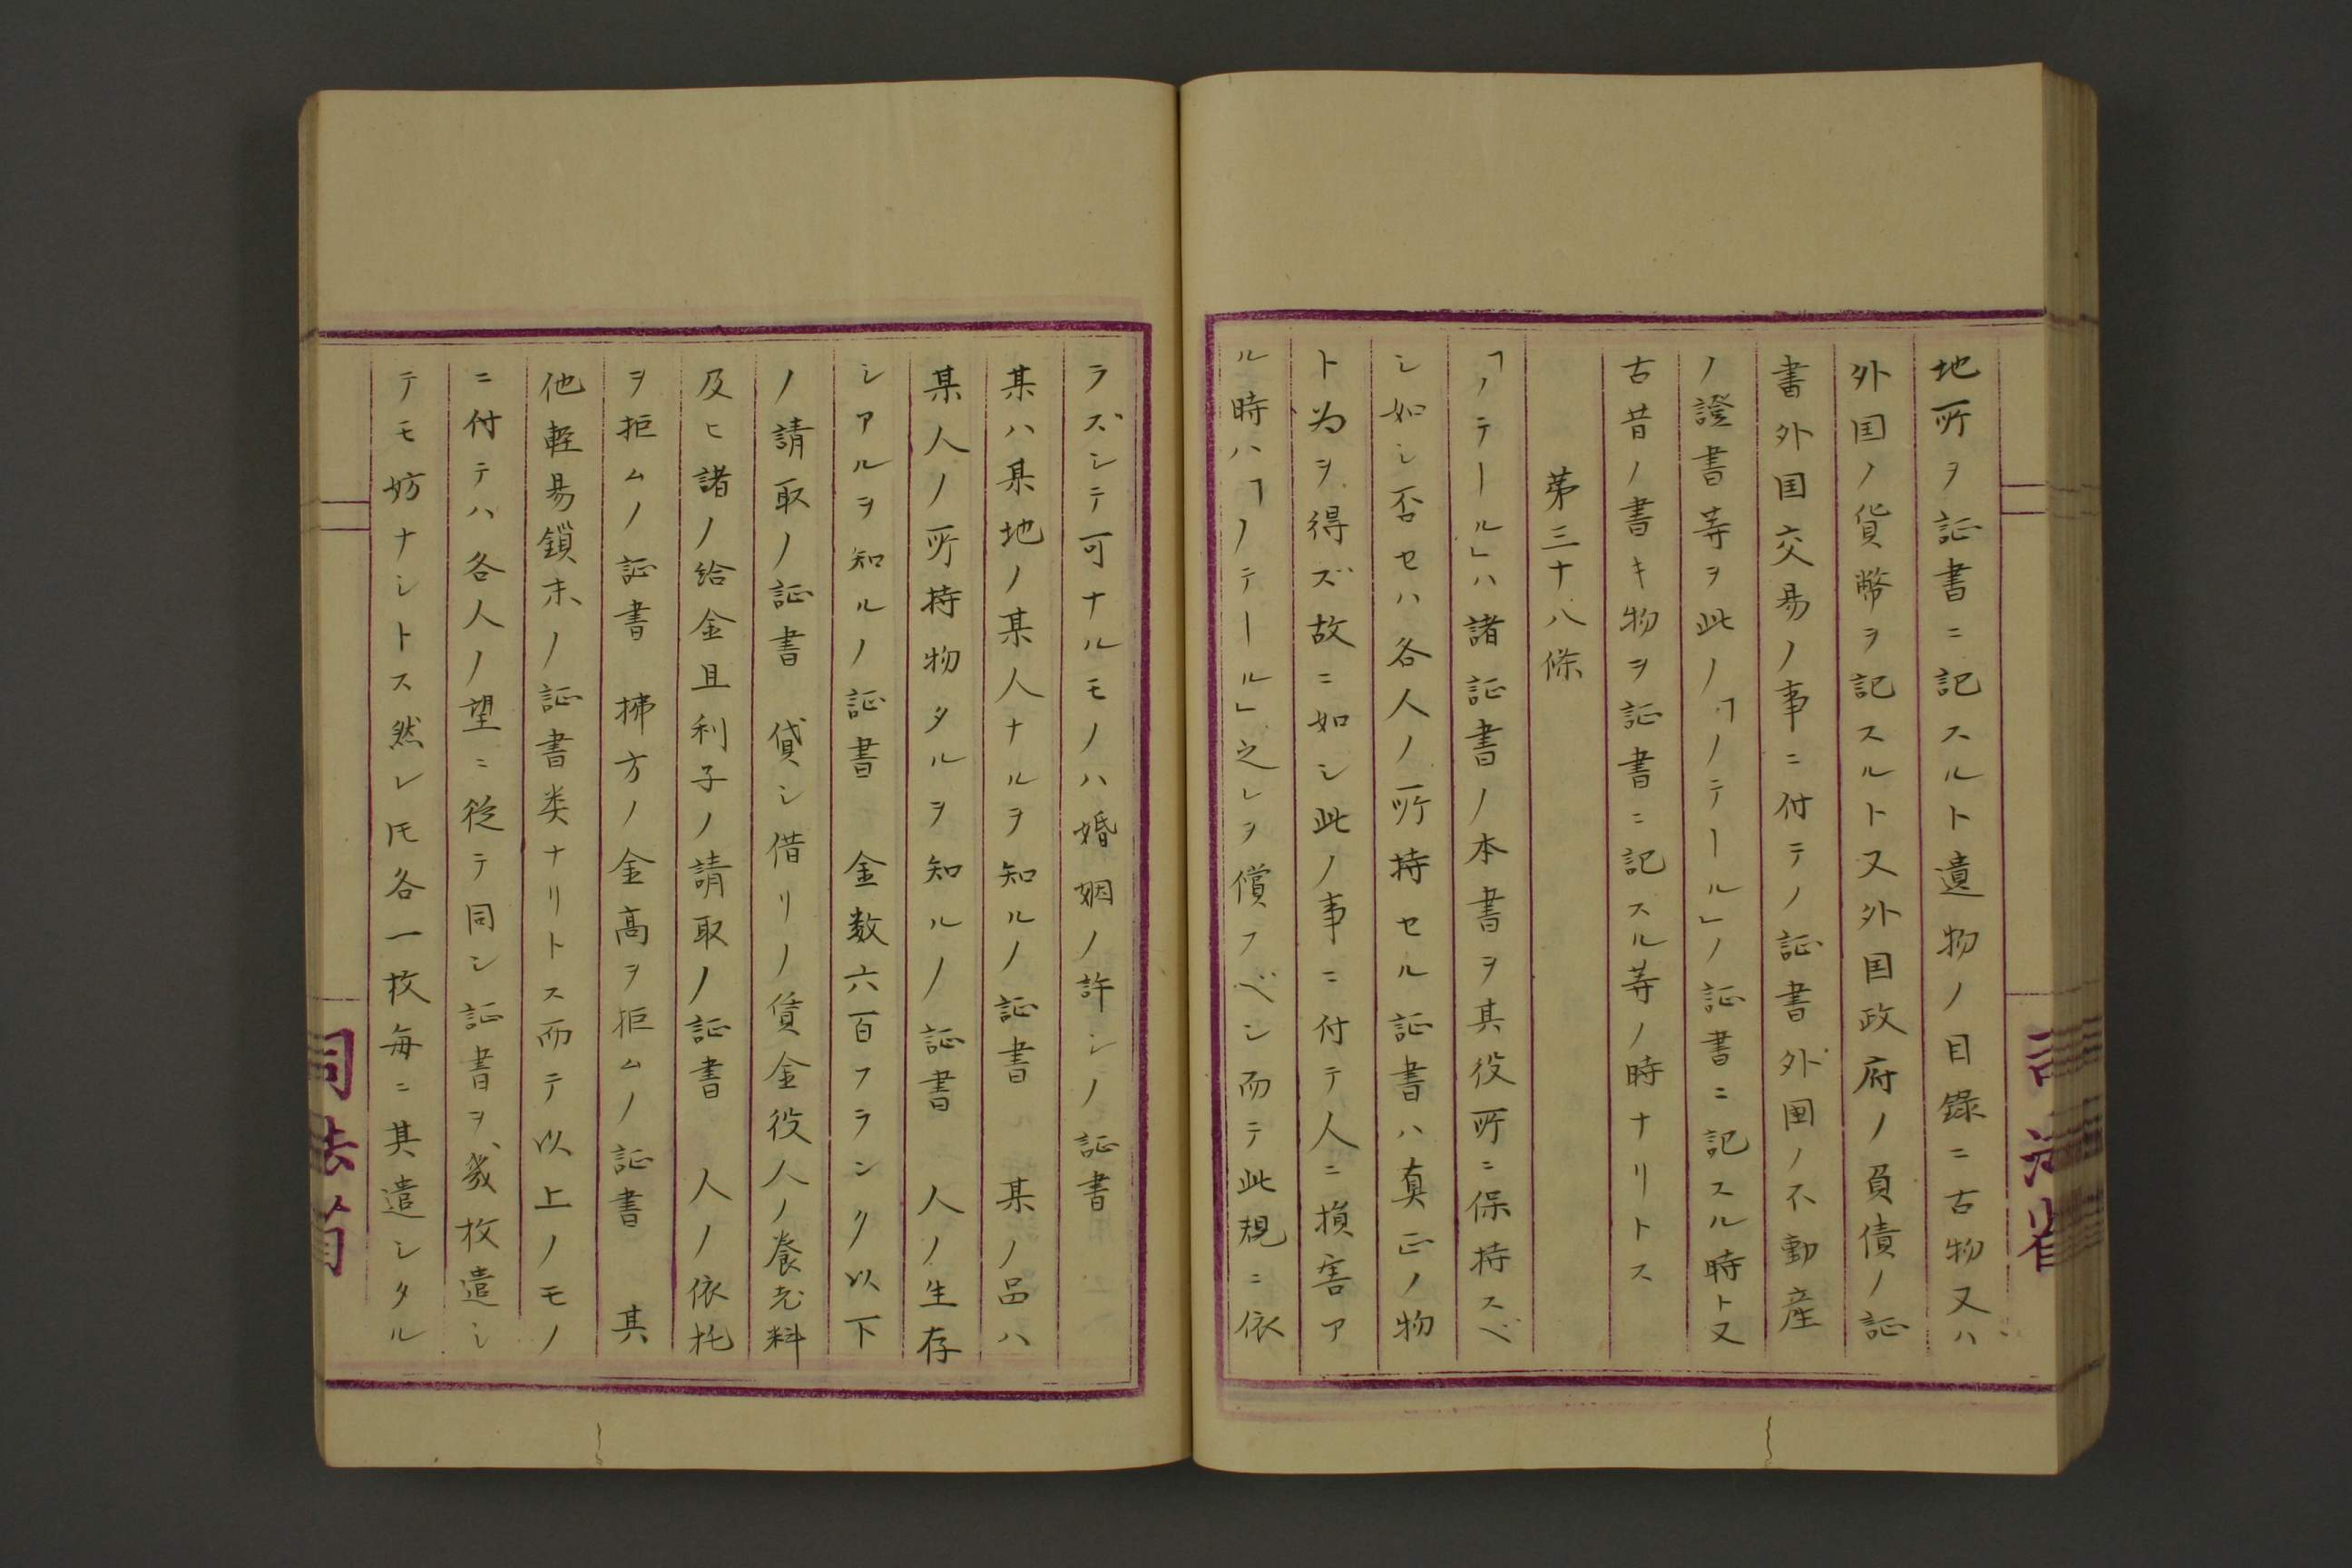 地所ヲ証書ニ記スルト遺物ノ目録ニ古物又ハ
外国ノ貨幣ヲ記スルト又外国政府ノ負債ノ証
書外国交易ノ事ニ付テノ証書外国ノ不動産
ノ證書等ヲ此ノ「ノテール」ノ証書ニ記スル時ト又
古昔ノ書キ物ヲ証書ニ記スル等ノ時ナリトス
第三十八條
「ノテール」ハ諸証書ノ本書ヲ其役所ニ保持スベ
シ如シ否セハ各人ノ所持セル証書ハ真正ノ物
ト为ヲ得ズ故ニ如シ此ノ事ニ付テ人ニ損害ア
ル時ハ「ノテール」之レヲ償フベシ而テ此規ニ依
ラズシテ可ナルモノハ婚姻ノ許シノ証書
某ハ某地ノ某人ナルヲ知ルノ証書　某ノ品ハ
某人ノ所持物タルヲ知ルノ証書　人ノ生存
シアルヲ知ルノ証書　金数六百フランク以下
ノ請取ノ証書　貸シ借リノ賃金役人ノ養老料
及ヒ諸ノ給金且利子ノ請取ノ証書　人ノ依托
ヲ拒ムノ証書　拂方ノ金高ヲ拒ムノ証書　其
他軽易鎖末ノ証書类ナリトス而テ以上ノモノ
ニ付テハ各人ノ望ニ從テ同シ証書ヲ幾枚遣シ
テモ妨ナシトス然レ𪜈各一枚毎ニ其遣シタル
司法省